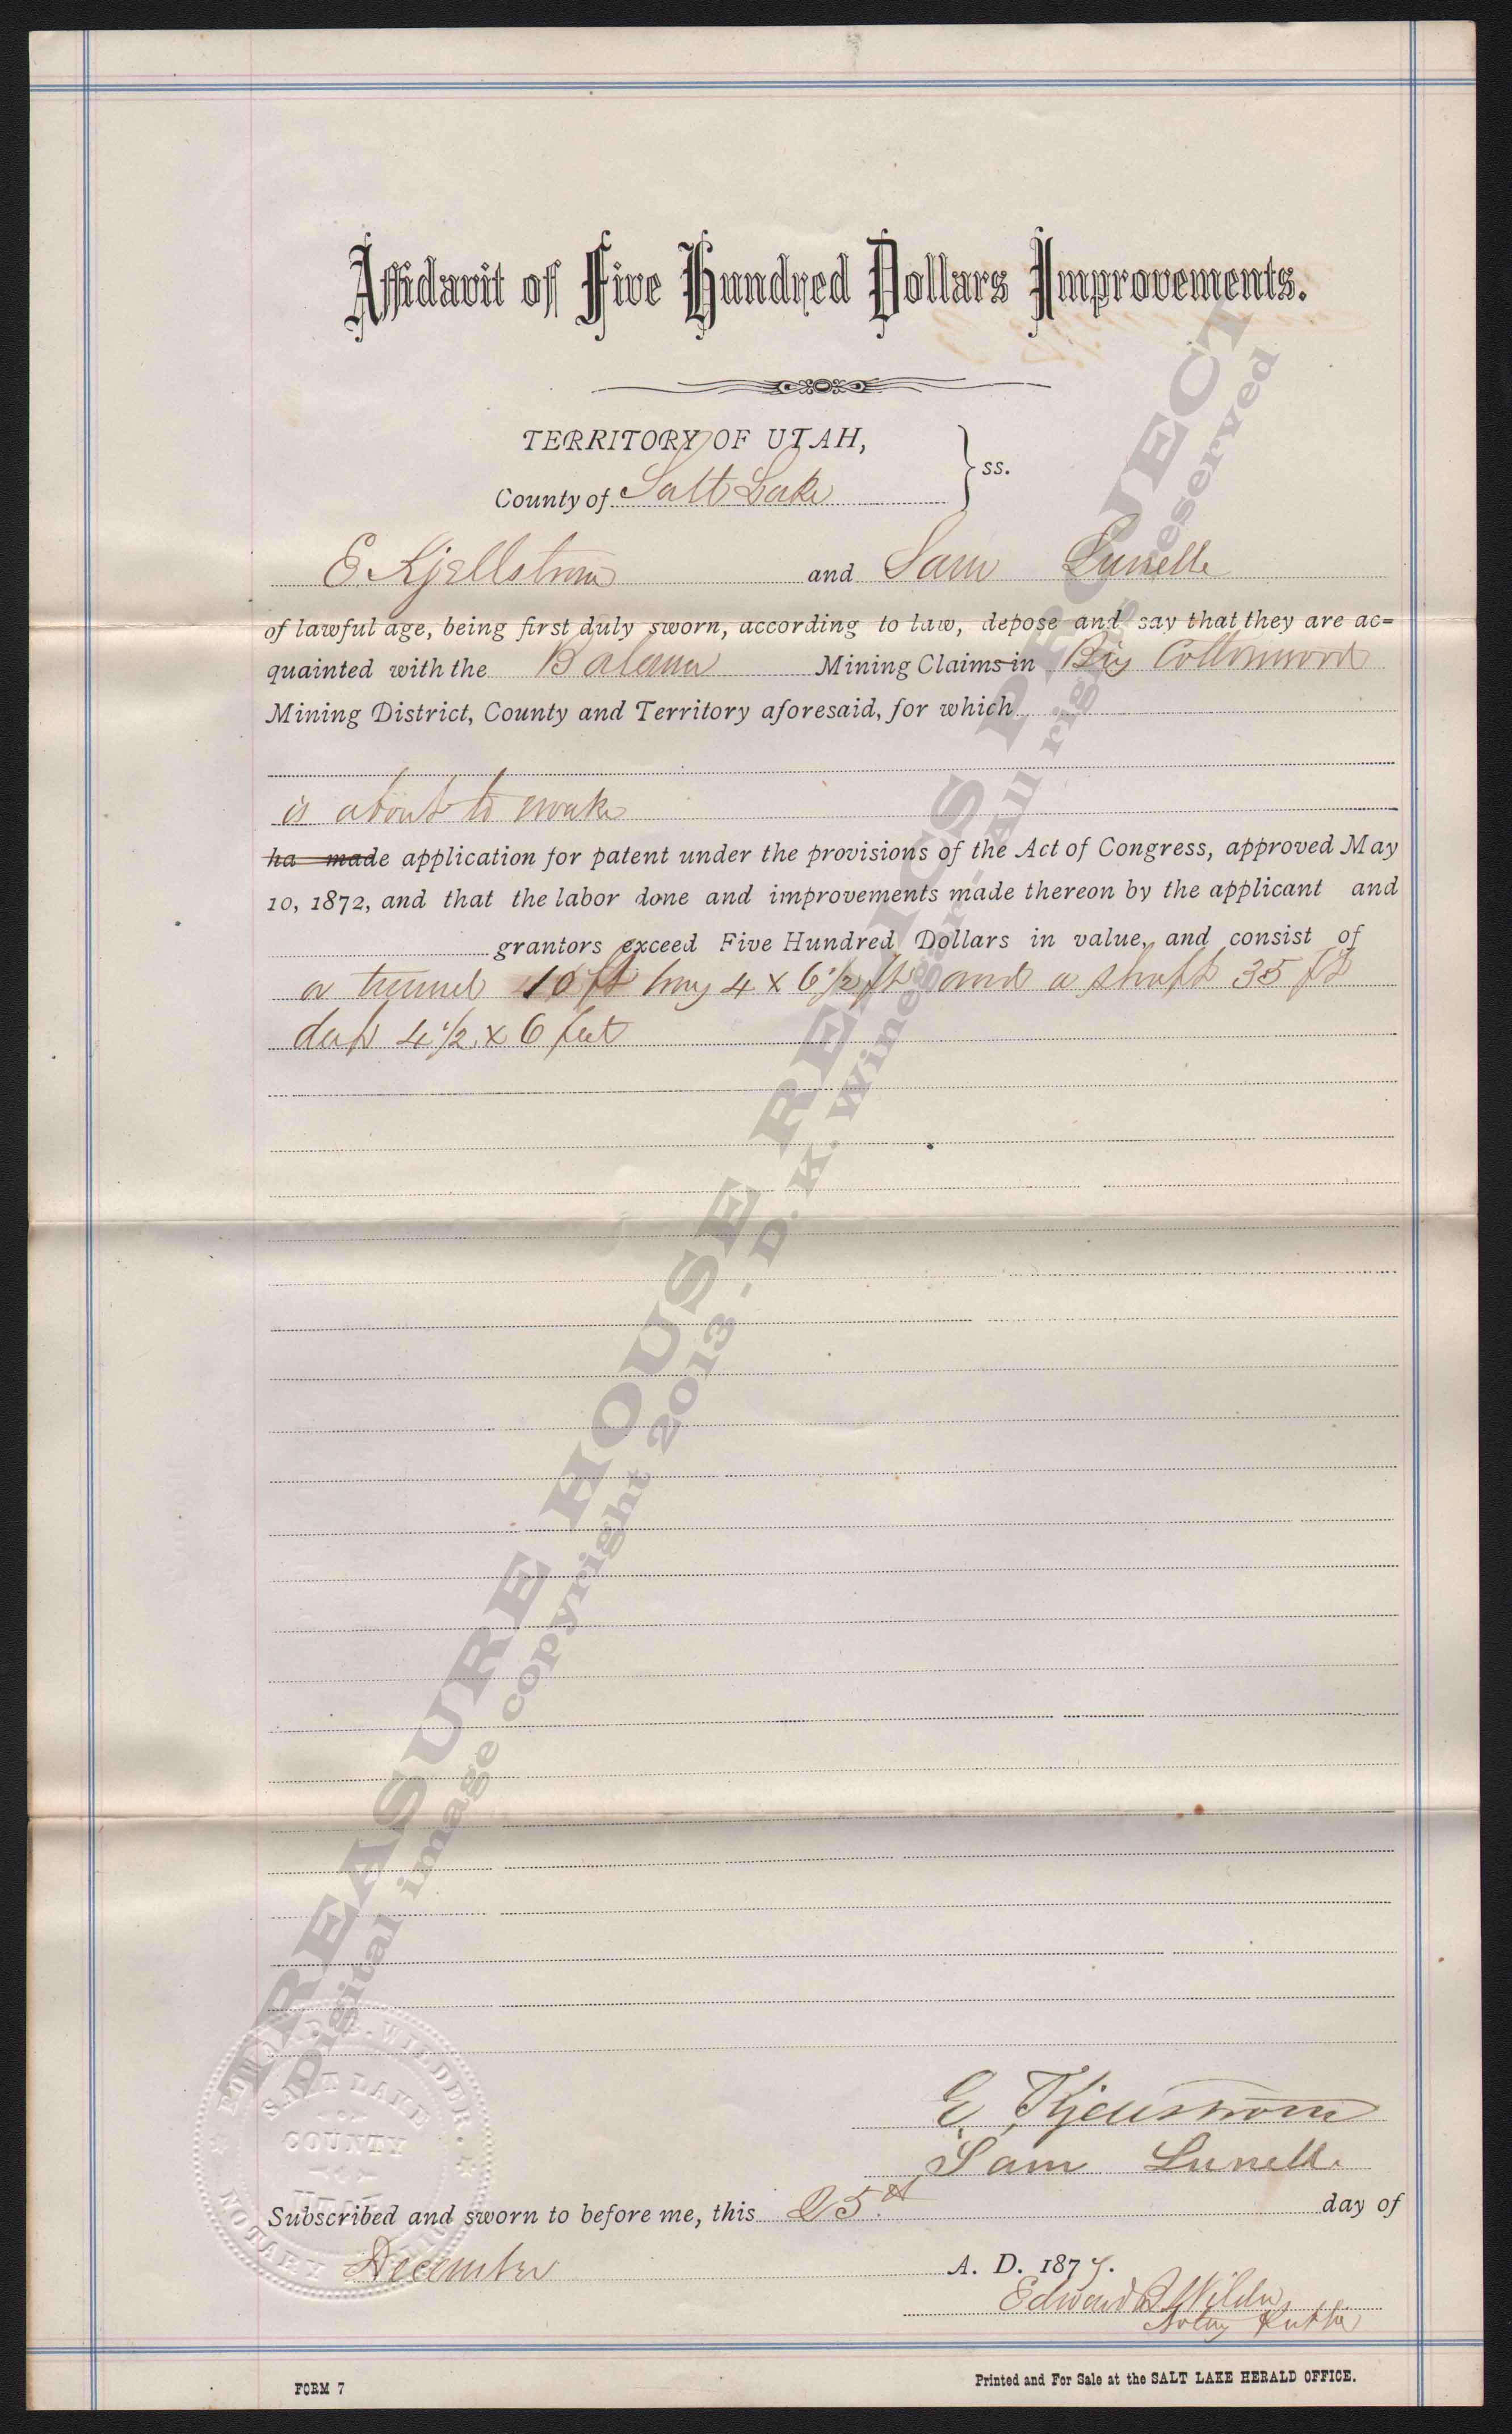 Affidavit of Five Hundred Dollars Improvements.
TERRITORY OF UTAH,
ss.
County of Salt Lake
E. Kjellstrom and Sam Lunelle
of lawful age, being first duly sworn, according to law, depose and say that they are ac=
quainted with the Mining Claims in Big Cottonwood
Mining District, County and Territory aforesaid, for which
is about to make
ha made application for patent under the provisions of the Act of Congress, approved May
10, 1872, and that the labor done and improvements made thereon by the applicant and
grantors exceed Five Hundred Dollars in value, and consist of
a tunnel 10 ft long 4 x 6 1/2 ft and a shaft 35 ft
deep 4 1/2 x 6 feet
E. Kjellstrom
Sam Lunell.
Subscribed and sworn to before me, this 25th day of
December A. D. 187
Edward B. Wilder
Notary Public
EDWARD B. WILDER.
SALT LAKE
COUNTY
UTAH
NOTARY PUBLIC
FORM 7
Printed and For Sale at the SALT LAKE HERALD OFFICE.
TREASURE HOUSE RELICS PROJECT
Digital image copyright 2013 - D. K. Winegar - All rights reserved